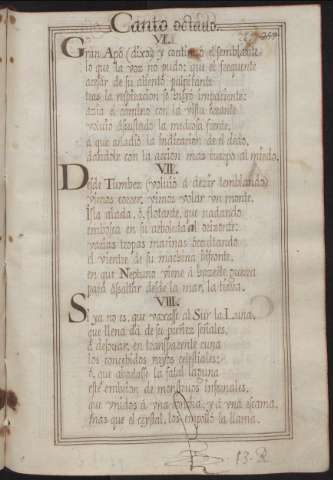 Canto octavo.
VI.
Gran Apó (dixo) y continuó el semblante
lo que la voz no pudo; que el frequente
acesar de su aliento palpitante
tras la respiracion se huyó impaciente:
azia el camino con la vista errante
volvio asustado la medrosa frente,
a que añadio la indicacion de el dedo,
dandole con la accion mas cuerpo al miedo.
VII.
Desde Tumbez (volvió a dezir temblando)
vimos correr, vimos volar un monte,
Isla alada, ó flotante, que nadando
embosca en su arboleda al orizonte:
varias tropas marinas ocultando
el vientre de su machina bifronte,
en que Neptuno viene á hazerte guerra
para assaltar desde la mar, la tierra.
VIII.
Si ya no es, que baxasse al Sur la Luna,
que llena dá de su preñez señales,
á depositar, en transparente cuna
los concebidos rayos celestiales:
ó, que abordasse la fatal laguna
este embrion de monstruos infernales,
que unidos á una concha, y á una escama,
mas que el crystal, los empolló la llama.
13. R.